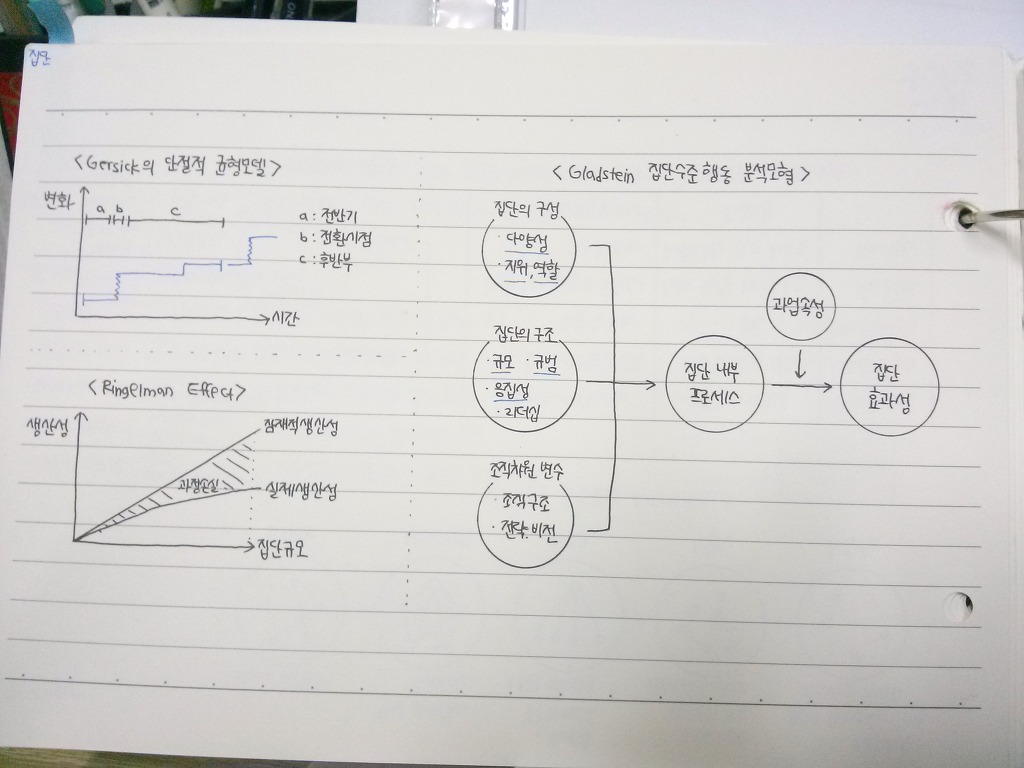 집단
<Gersick의 단절적 균형모델>
변화
a b c
a : 전반기
b : 전환시점
c : 후반부
시간
<Ringelman Effect>
생산성
잠재적생산성
과정손실
실제생산성
집단규모
<Gladstein 집단수준 행동 분석모형>
집단의 구성
· 다양성
· 지위, 역할
집단의 구조
· 규모 · 규범
· 응집성
· 리더십
조직차원 변수
· 조직구조
· 전략, 비전
집단 내부
프로세스
과업속성
집단
효과성